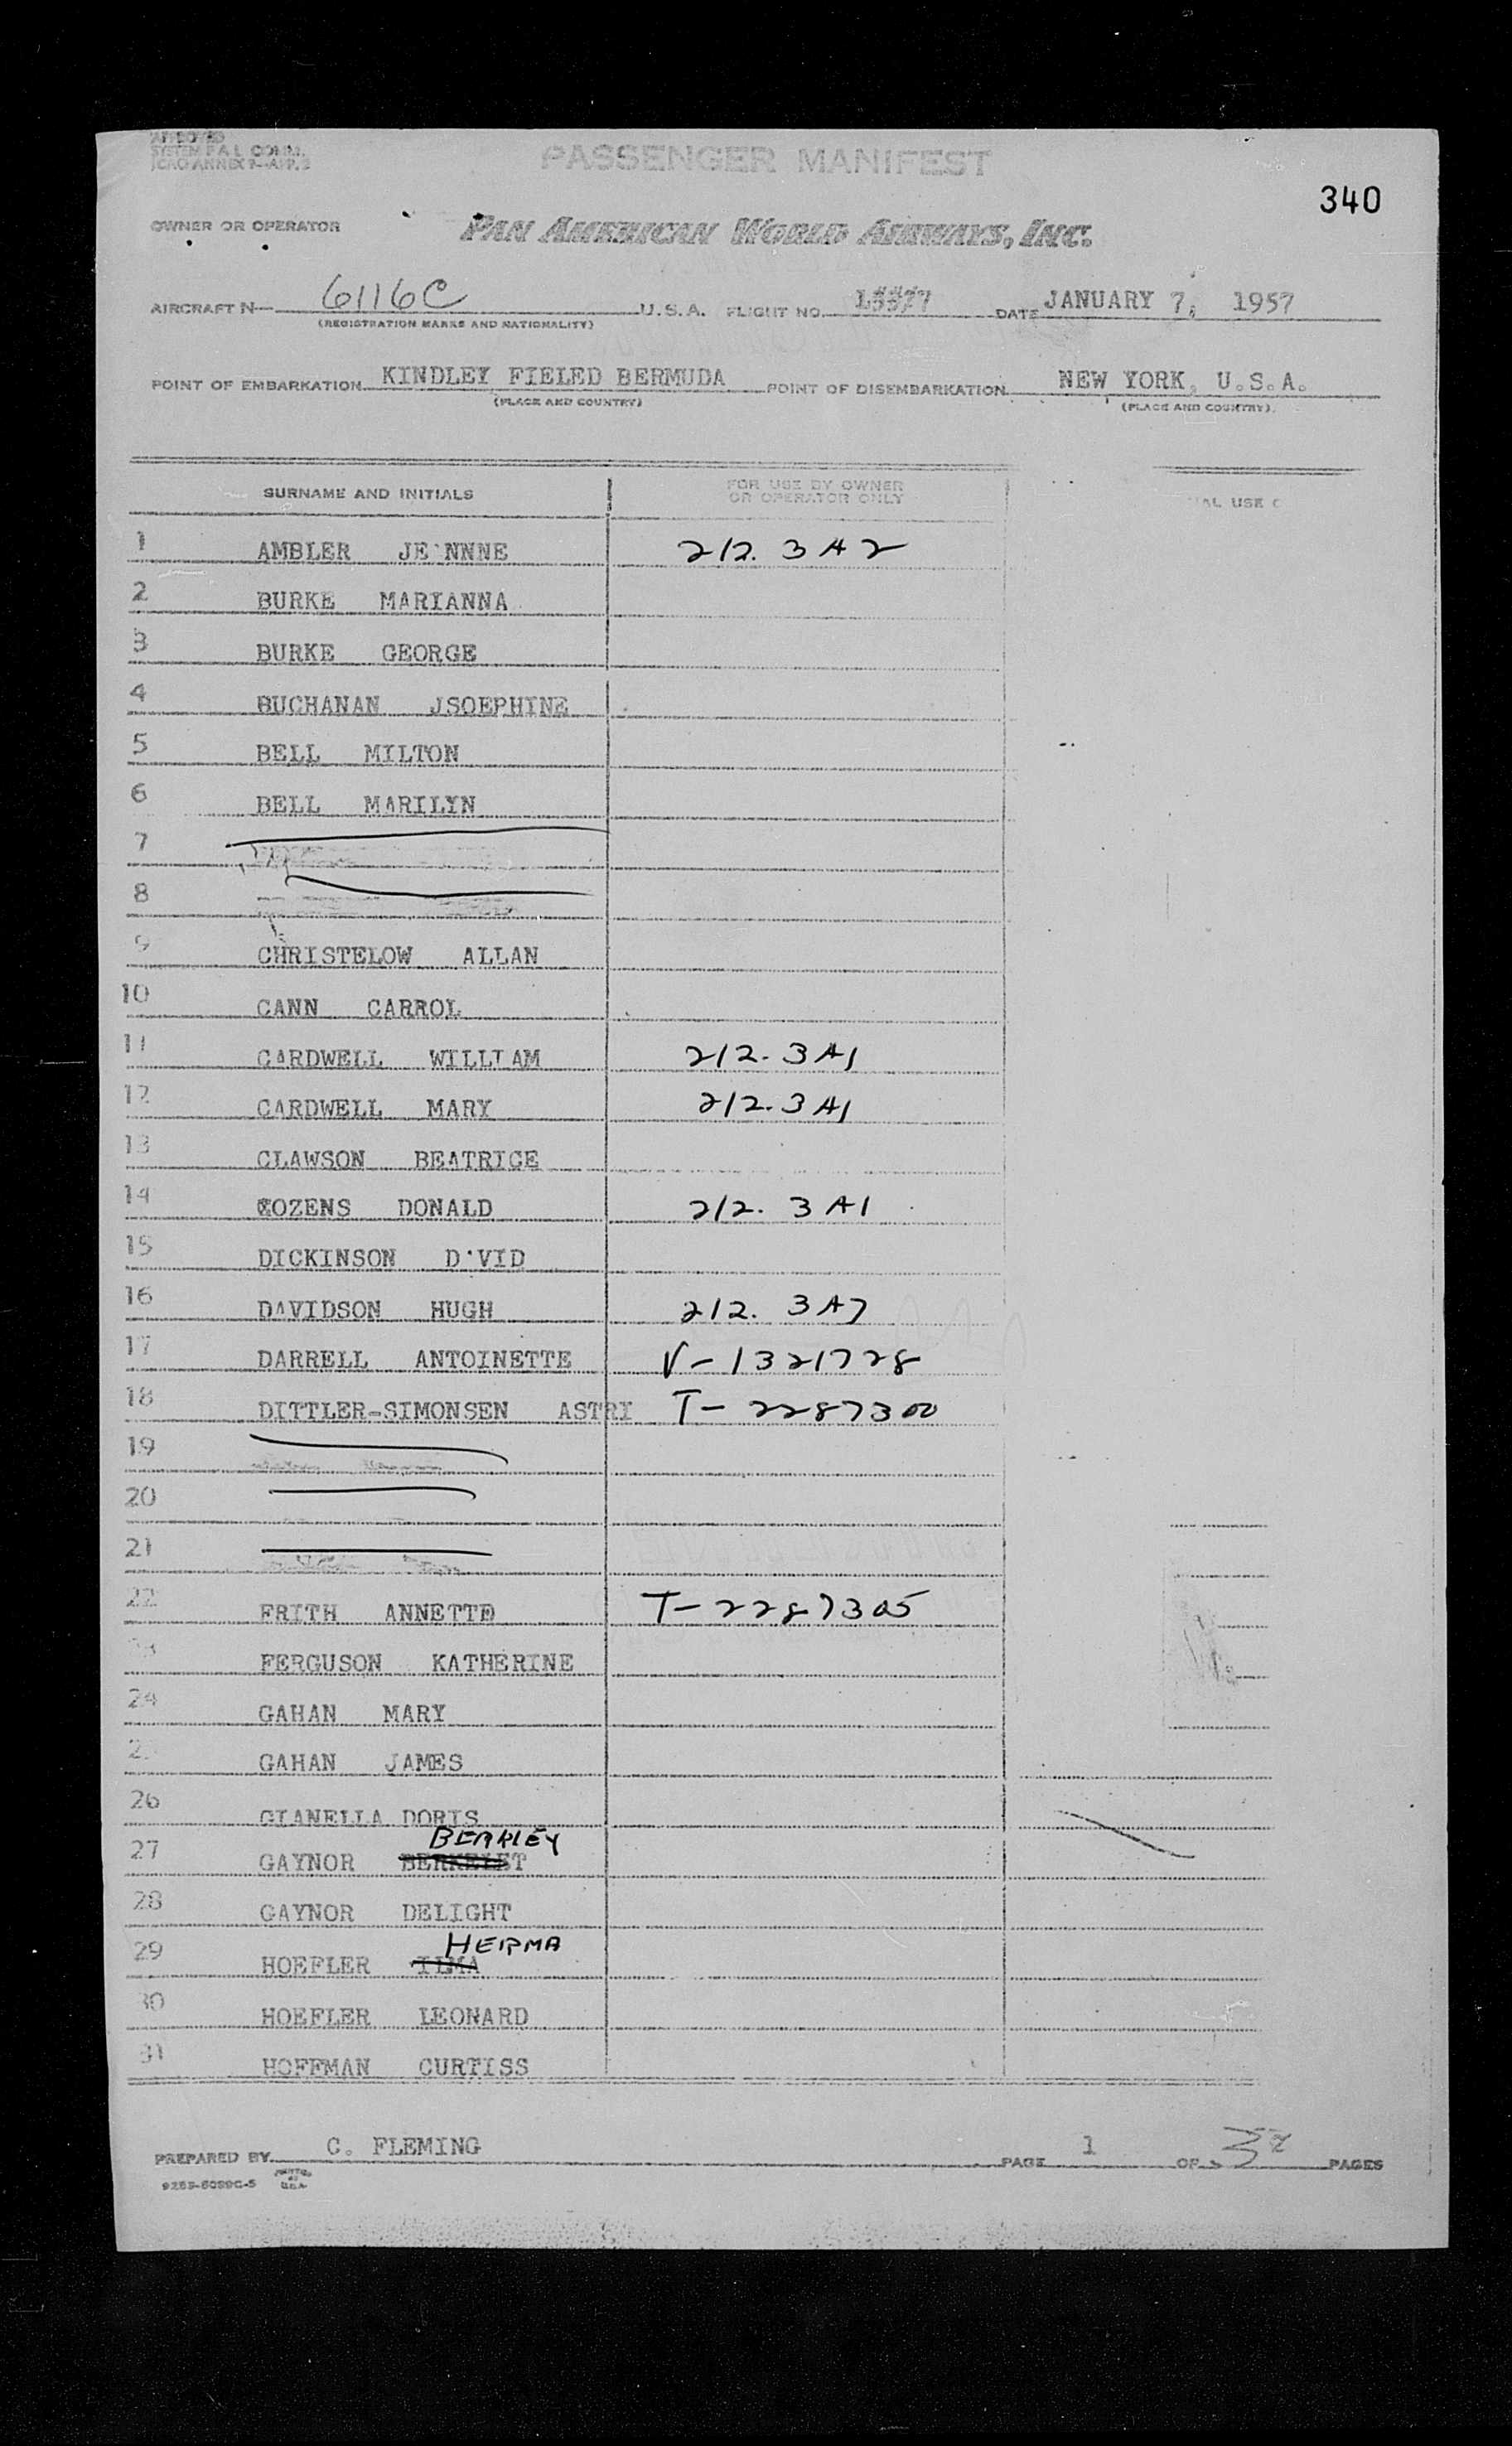 APPROVED
SYSTEM F.A.L. COMM.
ICAO ANNEX 9-APP. 3
PASSENGER MANIFEST
340
OWNER OR OPERATOR PAN AMERICAN WORLD AIRWAYS, INC.
AIRCRAFT N— 6116C U.S.A. FLIGHT NO. DATE JANUARY 7, 1957
(REGISTRATION MARKS AND NATIONALITY)
POINT OF EMBARKATION KINDLEY FIELED BERMUDA POINT OF DISEMBARKATION NEW YORK, U.S.A.
(PLACE AND COUNTRY) (PLACE AND COUNTRY)
SURNAME AND INITIALS FOR USE BY OWNER
OR OPERATOR ONLY
AL USE
1 AMBLER JE'NNNE 212. 3 A 2
2 BURKE MARIANNA
3 BURKE GEORGE
4 BUCHANAN JSOEPHINE
5 BELL MILTON
6 BELL MARILYN
7
8
9 CHRISTELOW ALLAN
10 CANN CARROL
11 CARDWELL WILLIAM 212. 3 A1
12 CARDWELL MARY 212. 3 A1
13 CLAWSON BEATRICE
14 COZENS DONALD 212. 3 A1
15 DICKINSON D'VID
16 DAVIDSON HUGH 212. 3 A7
17 DARRELL ANTOINETTE V-1321728
18 DITTLER-SIMONSEN ASTRI T-2287300
19
20
21
22 FRITH ANNETTE T-2287305
23 FERGUSON KATHERINE
24 GAHAN MARY
2 GAHAN JAMES
26 GIANELLA DORIS
BERKLEY
27 GAYNOR
28 GAYNOR DELIGHT
HERMA
29 HOEFLER ILMA
30 HOEFLER LEONARD
31 HOFFMAN CURTISS
PREPARED BY C. FLEMING PAGE 1 OF PAGES
PRINTED
IN
U.S.A.